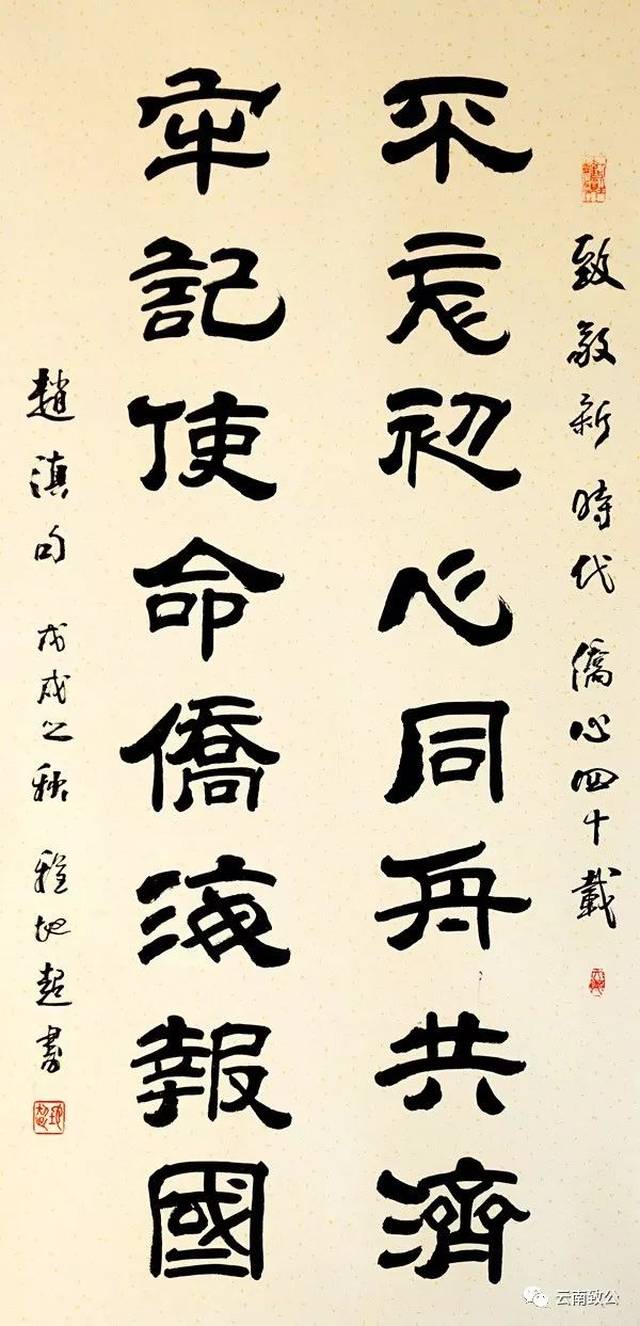 致敬新時代 僑心四十載
不忘初心同舟共濟
牢記使命僑海報國
趙滇句 戊戌之秋 程地超書
云南致公